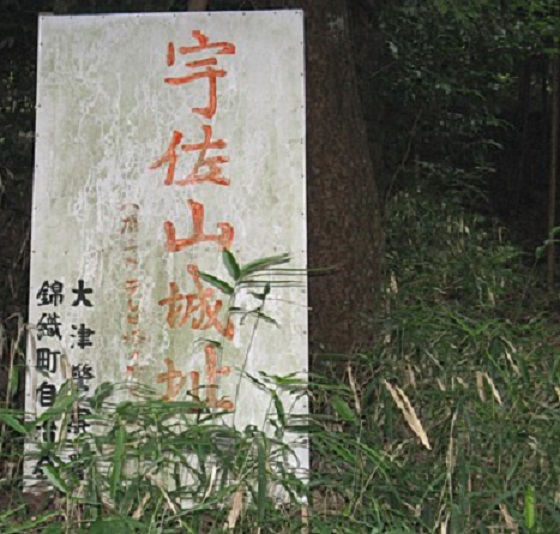 宇佐山城址
大津警察署
錦織町自治会